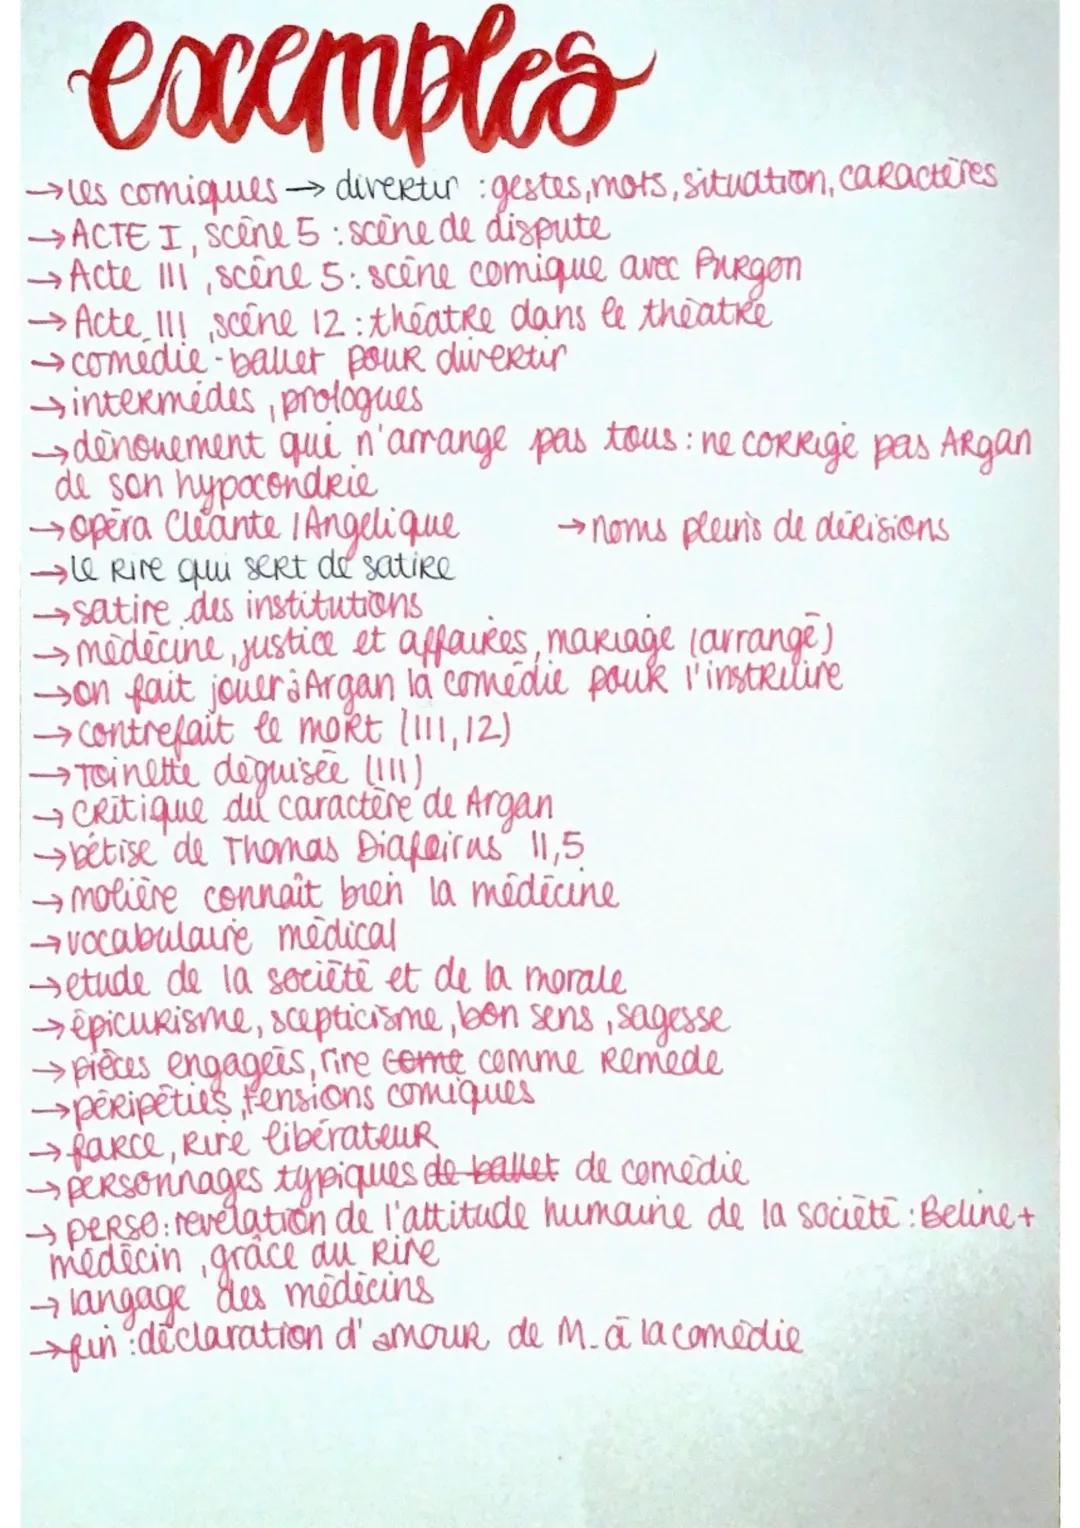 exemples
→les comiques → divertir : gestes, mots, situation, caractères
→ACTE I, scène 5 : scène de dispute
→Acte III, scène 5 : scène comique avec Purgon
→Acte III, scène 12 : théatre dans le théatre
→comédie-ballet pour divertir
→intermédes, prologues
→dénouement qui n'arrange pas tous : ne corrige pas Argan
de son hypocondrie
→opéra Cléante / Angelique →noms pleins de dérisions
→le rire qui sert de satire
→satire des institutions
→médecine, justice et affaires, mariage (arrangé)
→on fait jouer à Argan la comédie pour l'instruire
→contrefait le mort (III, 12)
→Toinette déguisée (III)
→critique du caractère de Argan
→bétise de Thomas Diafoirus II,5
→molière connaît bien la médecine
→vocabulaire médical
→etude de la société et de la morale
→épicurisme, scepticisme, bon sens, sagesse
→pièces engagées, rire come comme remede
→péripéties, tensions comiques
→farce, rire libérateur
→personnages typiques de ballet de comédie
→perso : revélation de l'attitude humaine de la société : Beline +
médecin, grâce au rire
→langage des médecins
→fin : déclaration d'amour de M. à la comédie